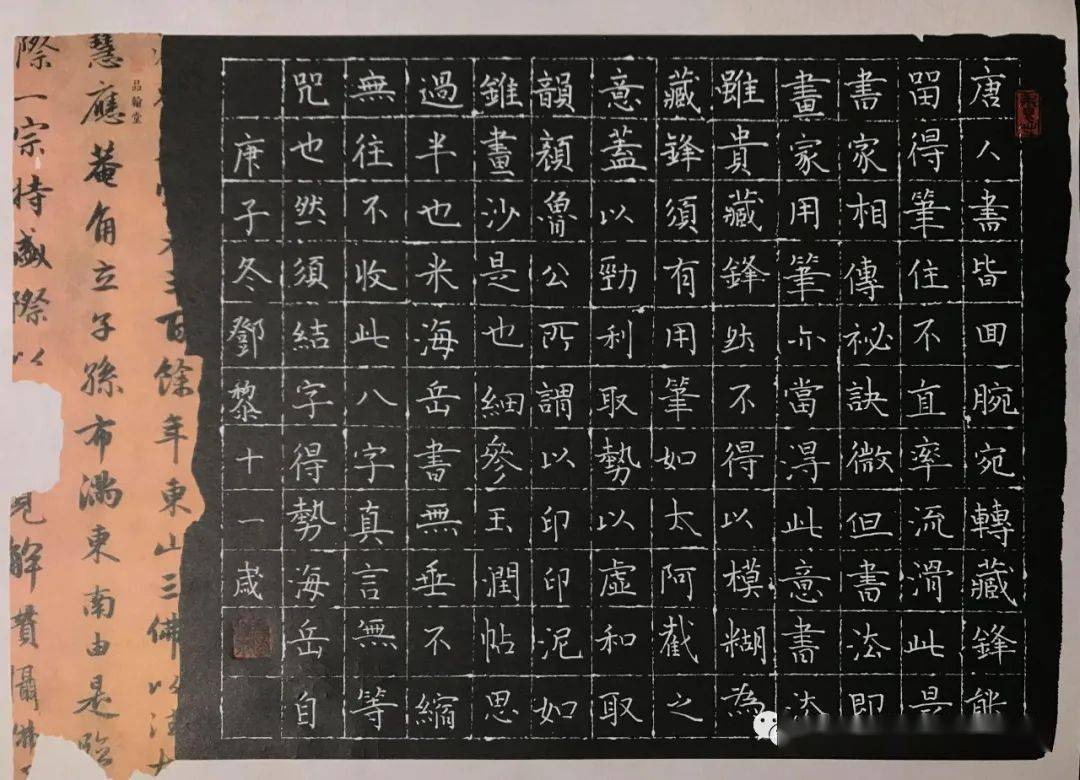 唐人書皆回腕宛轉藏鋒能
留得筆住不直率流滑此是
書家相傳祕訣微但書法即
畫家用筆亦當得此意書法
雖貴藏鋒然不得以模糊為
藏鋒須有用筆如太阿截之
意蓋以勁利取勢以虛和取
韻顏魯公所謂以印印泥如
錐畫沙是也細參玉潤帖思
過半也米海岳書無垂不縮
無往不收此八字真言無等
咒也然須結字得勢海岳自
庚子冬鄧黎十一歲
百餘年東山三佛以法
品翰堂
慧應菴角立子孫布滿東南由是臨
際一宗持盛際以見解贊懾佛